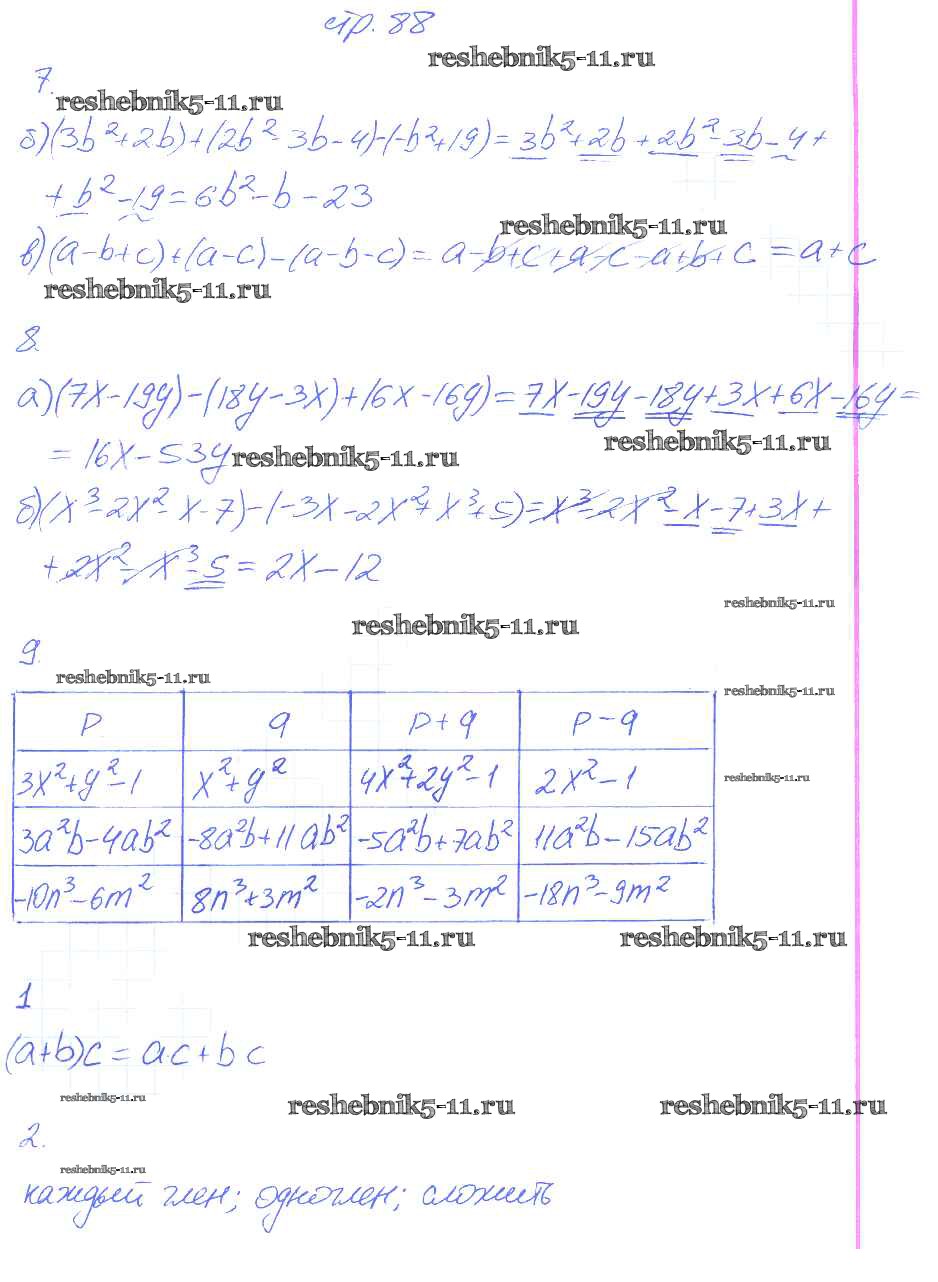 стр. 88
reshebnik5-11.ru
7.
reshebnik5-11.ru
б)(3b²+2b)+(2b²-3b-4)-(-b²+19)=3b²+2b+2b²-3b-4+
+b²-19=6b²-b-23
reshebnik5-11.ru
в)(a-b+c)+(a-c)-(a-b-c)=a-b+c+a-c-a+b+c=a+c
reshebnik5-11.ru
8.
а)(7x-19y)-(18y-3x)+(6x-16y)=7x-19y-18y+3x+6x-16y=
reshebnik5-11.ru
=16x-53y
reshebnik5-11.ru
б)(x³-2x²-x-7)-(-3x-2x²+x³+5)=x³-2x²-x-7+3x+
+2x²-x³-5=2x-12
reshebnik5-11.ru
reshebnik5-11.ru
9.
reshebnik5-11.ru
reshebnik5-11.ru
p q p+q p-q
3x²+y²-1 x²+y² 4x²+2y²-1 2x²-1
reshebnik5-11.ru
3a²b-4ab² -8a²b+11ab² -5a²b+7ab² 11a²b-15ab²
-10n³-6m² 8n³+3m² -2n³-3m² -18n³-9m²
reshebnik5-11.ru reshebnik5-11.ru
1
(a+b)c=ac+bc
reshebnik5-11.ru
reshebnik5-11.ru reshebnik5-11.ru
2.
reshebnik5-11.ru
каждый член; одночлен; сложить